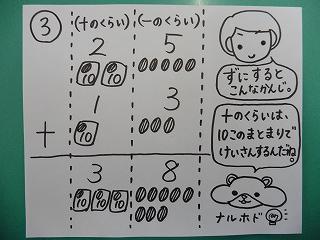 ③
(十のくらい) (一のくらい)
2 5
10 10
1 3
+
10
3 8
10 10 10
ずにすると
こんなかんじ。
十のくらいは、
10このまとまりで
けいさんするんだね。
ナルホド